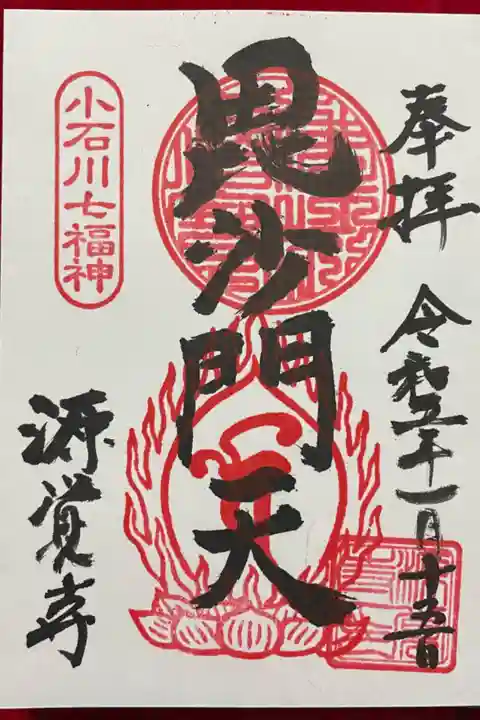 奉拝
令和五年十一月十五日
毘沙門天
小石川七福神
源覚寺